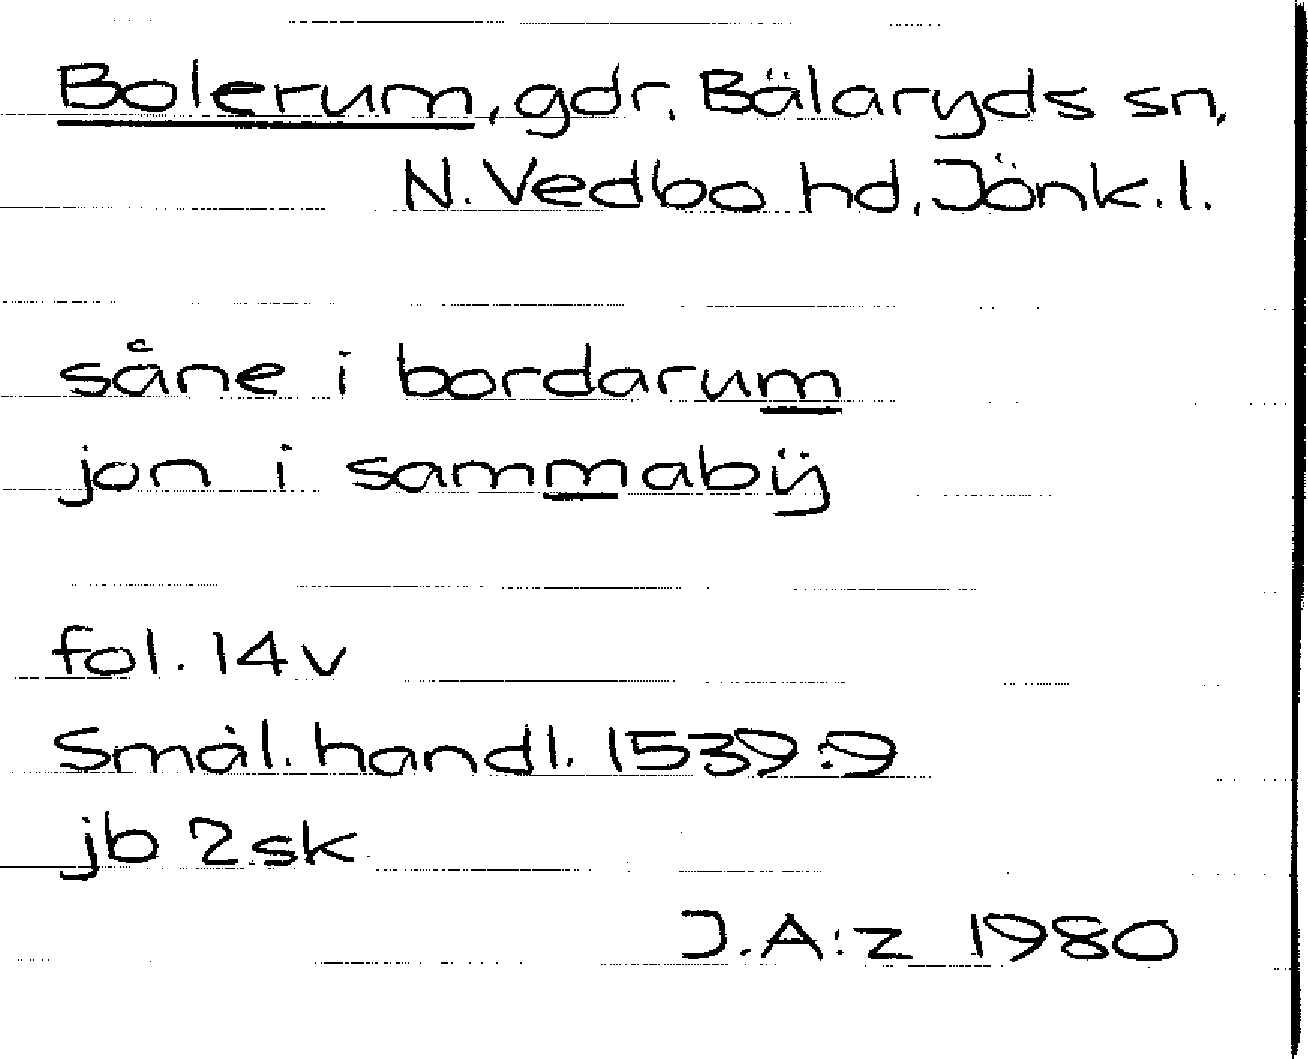 Bolerum, gdr, Bälaryds sn,
N. Vedbo hd, Jönk. l.
såne i bordarum
jon i sammabÿ
fol. 14 v
Smål. handl. 1539:9
jb 2 sk
J.A:z 1980